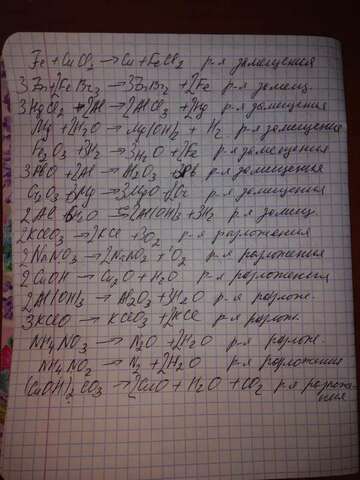 Fe + CuCl2 → Cu + FeCl2 р-я замещения
3Zn + 2FeBr3 → 3ZnBr2 + 2Fe р-я замещ.
3HgCl2 + 2Al → 2AlCl3 + 3Hg р-я замещения
Mg + 2H2O → Mg(OH)2 + H2 р-я замещение
Fe2O3 + 3H2 → 3H2O + 2Fe р-я замещения
3PbO + 2Al → Al2O3 + 3Pb р-я замещения
Cr2O3 + 3Mg → 3MgO + 2Cr р-я замещения
2Al + 6H2O → 2Al(OH)3 + 3H2 р-я замещ.
2KClO3 → 2KCl + 3O2 р-я разложения
2NaNO3 → 2NaNO2 + O2 р-я разложения
2CuOH → Cu2O + H2O р-я разложения
2Al(OH)3 → Al2O3 + 3H2O р-я разлож.
3KClO → KClO3 + 2KCl р-я разлож.
NH4NO3 → N2O + 2H2O р-я разлож.
NH4NO2 → N2 + 2H2O р-я разложения
(CuOH)2CO3 → 2CuO + H2O + CO2 р-я разложе-
ния